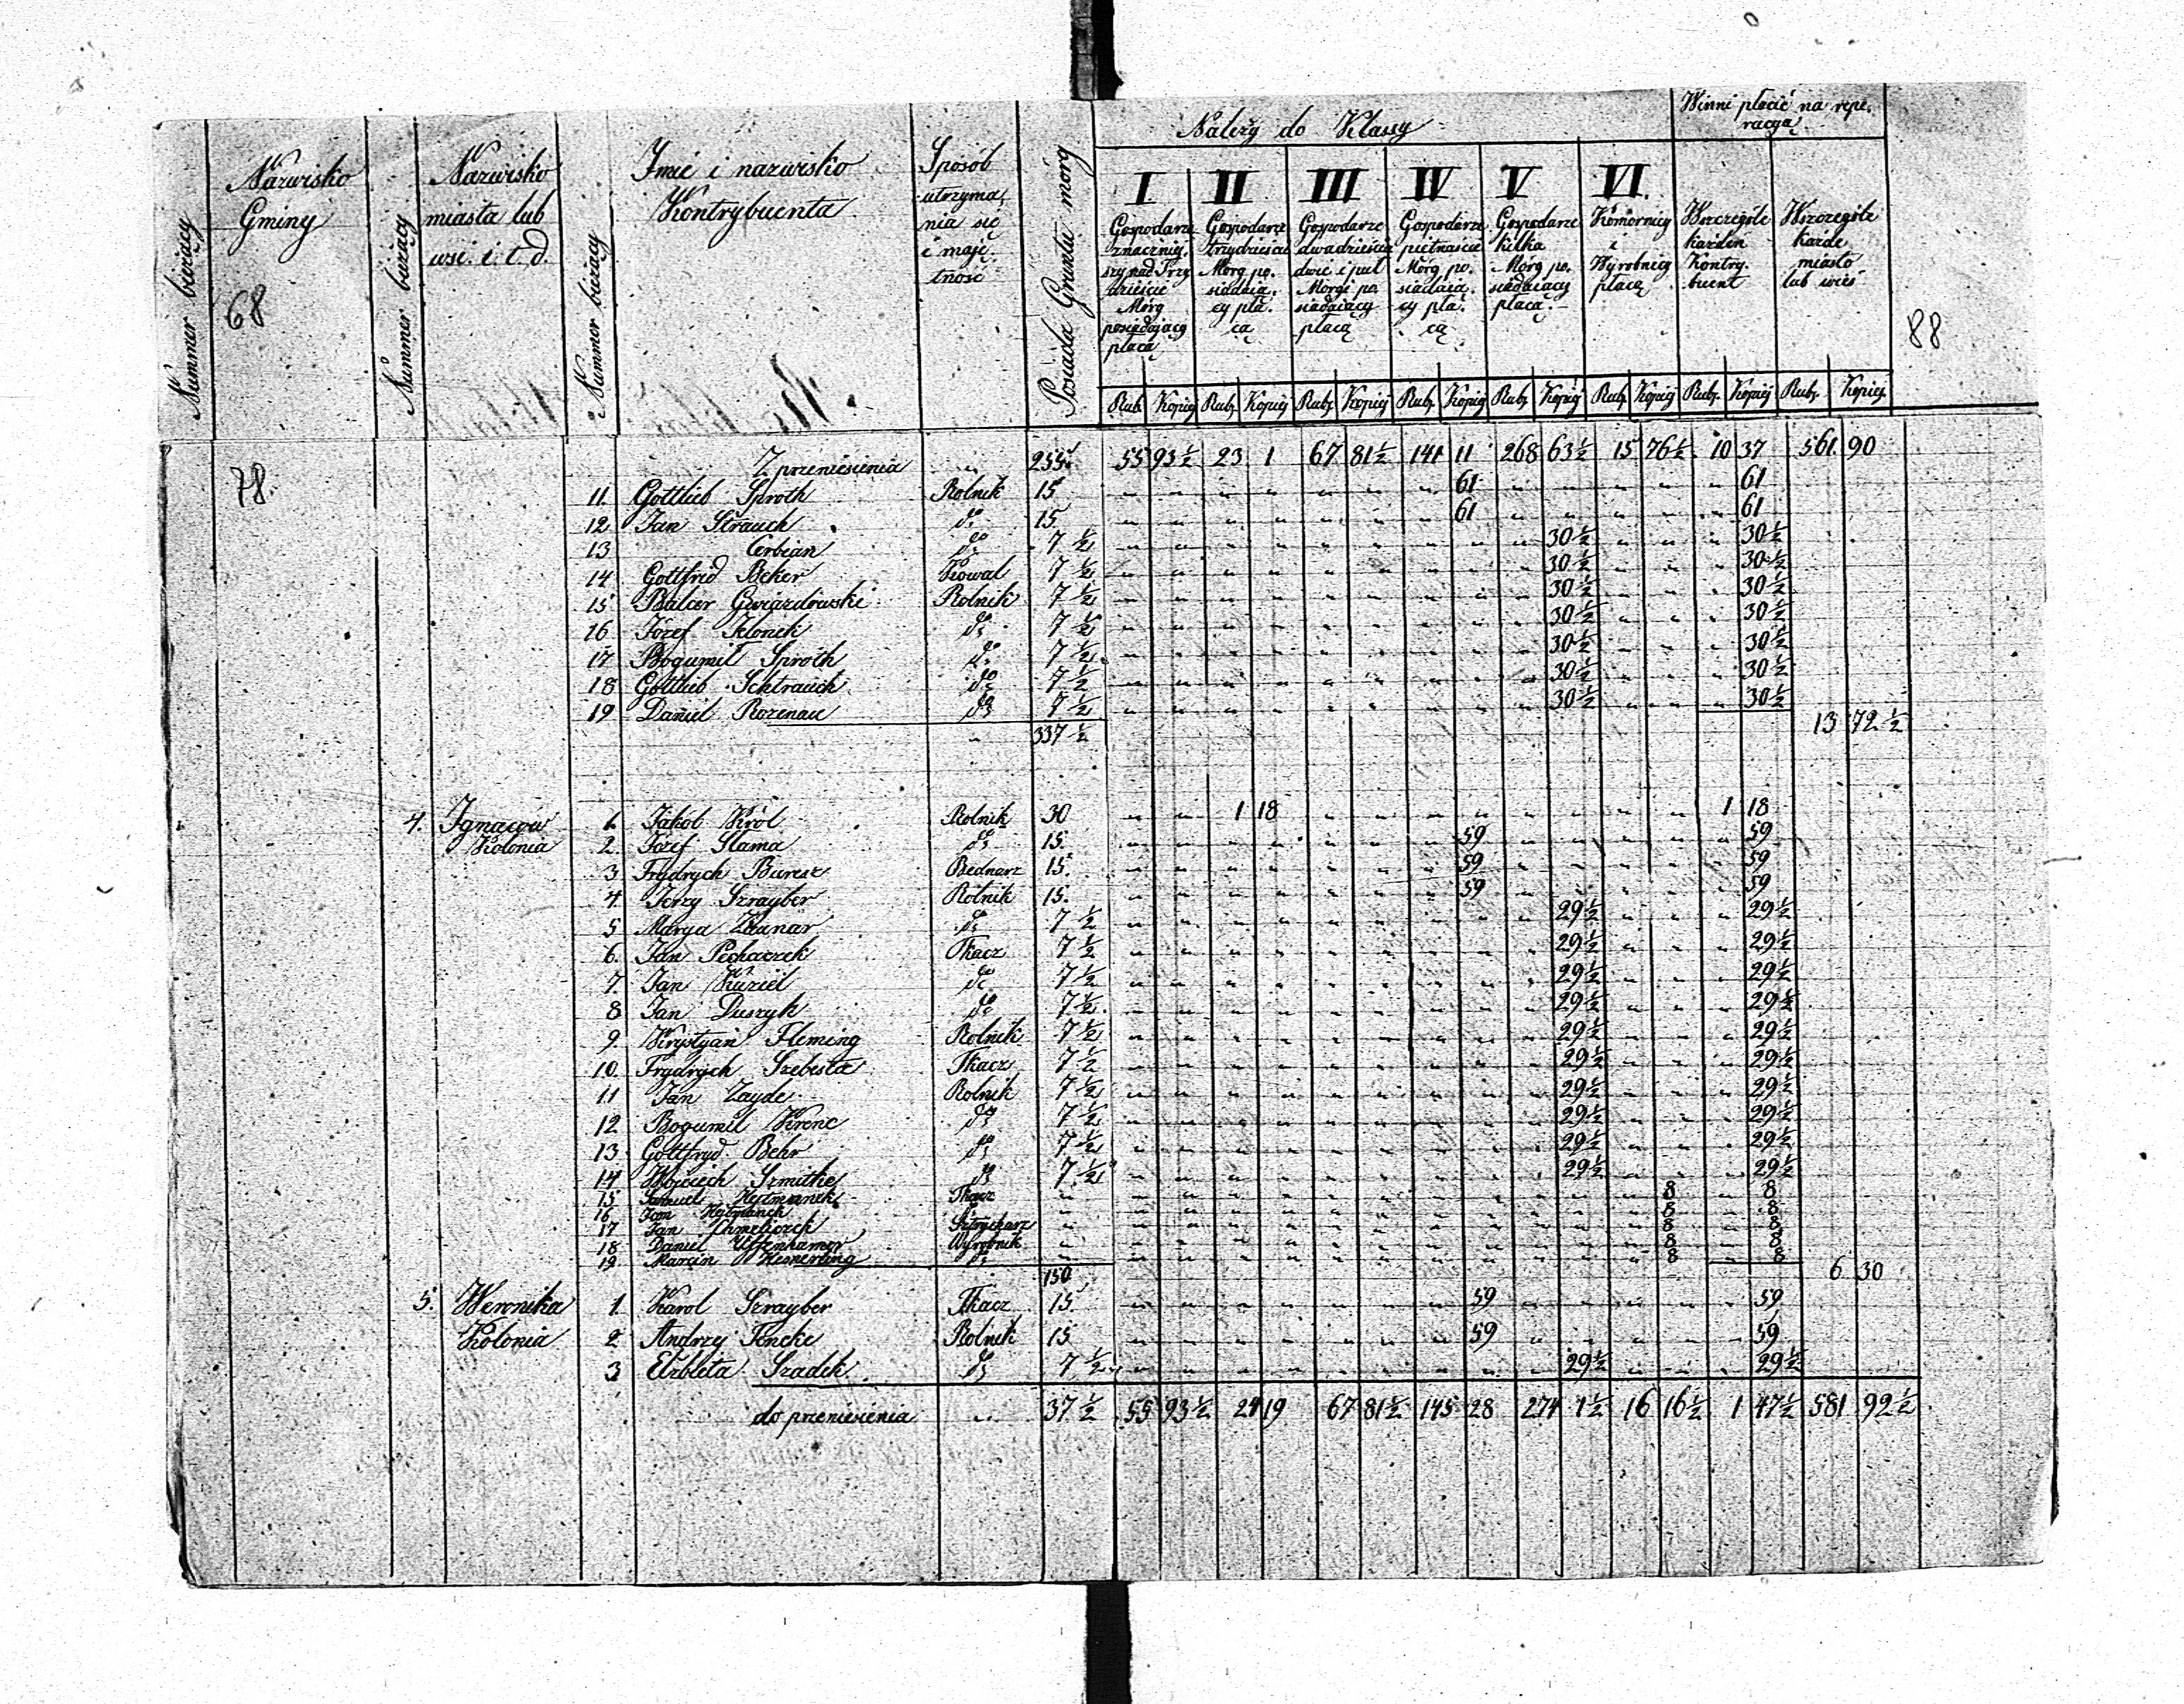 Winni płacić na repe.
racyą
Należy do Klassy
Nummer bieżący
Nazwisko
Gminy
68
Nummer bieżący
Nazwisko
miasta lub
wsi. i. t. d.
Nummer bieżący
Imie i nazwisko
Kontrybuenta
Sposób
utrzyma,
nia się
i maję,
tność
Posiada Gruntu mórg
I.
Gospodarze
znacznię.
szy nad Trzy
dzieście
Mórg
posiadający
płacą
II
Gospodarze
trzydzieście
Mórg po.
siadają.
cy pła.
cą
III
Gospodarze
dwadzieścia
dwie i puł
Morgi po
siadający
płacą
IV
Gospodarze
piętnaście
Mórg po.
siadają.
cy pła.
cą
V
Gospodarze
kilka
Mórg po.
siadający
płacą.
VI.
Komornicy
i
Wyrobnicy
płacą
Wszczególe
każden
Kontry.
buent
Wszczególe
każde
miasto
lub wieś
88
Rub. Kopiej Rub. Kopiej Rub. Kopiej Rub. Kopiej Rub. Kopiej Rub. Kopiej Rub. Kopiej Rub. Kopiej
78.
Z przeniesienia " 255. 55 93½ 23 1 67 81½ 141 11 268 63½ 15 76½ 10 37 561 90
11 Gottlieb Sproth Rolnik 15 61 61
12 Jan Strauch do 15 61 61
13 Cerbian do 7½ 30½ 30½
14 Gottfrid Beker Kowal 7½ 30½ 30½
15 Balcer Gwiazdowski Rolnik 7½ 30½ 30½
16 Józef Klonek do 7½ 30½ 30½
17 Bogumił Sproth do 7½ 30½ 30½
18 Gottlieb Schtrauch do 7½ 30½ 30½
19 Daniel Rozenau do 7½ 30½ 30½
" 337½ 13 72½
4. Ignacow 1. Jakób Król Rolnik 30 1 18 1 18
Kolonia 2. Józef Slama do 15 59 59
3 Frydrych Buresz Bednarz 15. 59 59
4 Jerzy Szrayber Rolnik 15. 59 59
5 Marya Zaunar do 7½ 29½ 29½
6. Jan Pechaczek Tkacz 7½ 29½ 29½
7. Jan Kuziel do 7½ 29½ 29½
8 Jan Duszyk do 7½ 29½ 29½
9. Krystyan Fleming Rolnik 7½ 29½ 29½
10. Frydrych Szebesta Tkacz 7½ 29½ 29½
11 Jan Zayde Rolnik 7½ 29½ 29½
12 Bogumił Krenc do 7½ 29½ 29½
13 Gottfryd Behr do 7½ 29½ 29½
14 Wojciech Szmitke do 7½ 29½ 29½
15 Samuel Hejtmanek Tkacz " 8 8
16 Jan Hejtmanek do " 8 8
17 Jan Chmeliczek Sztrycharz " 8 8
18 Daniel Wyrobnik " 8 8
19. Marcin do " 8 8
150 6 30
5. Weronika 1. Karol Szrayber Tkacz 15 59 59
Kolonia 2 Andrzej Fencke Rolnik 15 59 59
3 Elzbieta Szadek do 7½ 29½ 29½
do przeniesienia " 37½ 55 93½ 24 19 67 81½ 145 28 274 1½ 16 16½ 1 47½ 581 92½